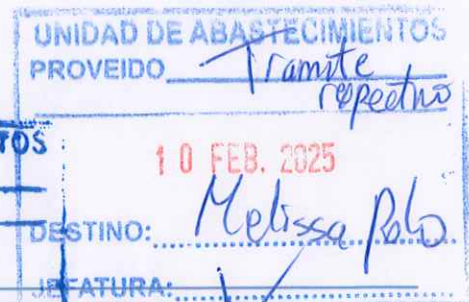 UNIDAD DE ABASTECIMIENTOS
PROVEIDO Tramite
respectivo
TOS :
10 FEB. 2025
DESTINO: Melissa Polo
JEFATURA: